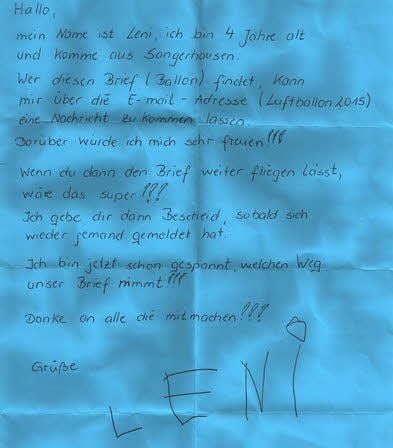 Hallo,
mein Name ist Leni, ich bin 4 Jahre alt
und komme aus Sangerhausen.
Wer diesen Brief (Ballon) findet, kann
mir über die E-mail-Adresse (Luftballon2015)
eine Nachricht zu kommen lassen.
Darüber würde ich mich sehr freuen!!!
Wenn du dann den Brief weiter fliegen lässt,
wäre das super!!!
Ich gebe dir dann Bescheid, sobald sich
wieder jemand gemeldet hat.
Ich bin jetzt schon gespannt, welchen Weg
unser Brief nimmt!!!
Danke an alle die mitmachen!!!
Grüße
LENi